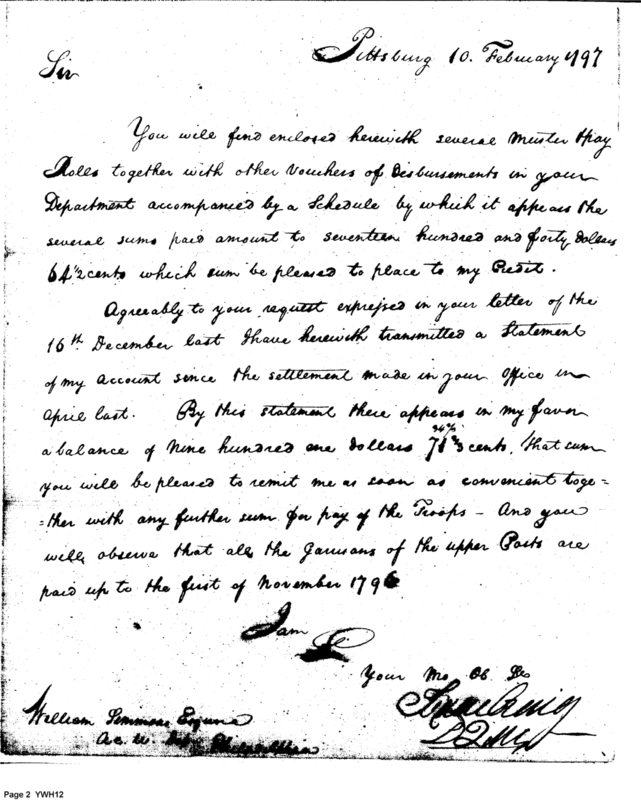 Pittsburg 10. February 1797
Sir
You will find enclosed herewith several Muster & pay
Rolls together with other Vouchers of Disbursements in your
Department accompanied by a Schedule by which it appears the
several sums paid amount to seventeen hundred and forty dollars
64 1/2 cents which sum be pleased to place to my Credit.
Agreeably to your request expressed in your letter of the
16th December last I have herewith transmitted a Statement
of my account since the settlement made in your office in
April last. By this statement there appears in my favor
a balance of Nine hundred one dollars cents, that sum
you will be pleased to remit me as soon as convenient toge=
=ther with any further sum for pay of the Troops - And you
will observe that all the Garrisons of the upper Posts are
paid up to the first of November 1796
I am
Your Mo Ob Se
Isaac Craig
DQM
William Simmons Esquire
Ac. Philadelphia
Page 2 YWH12